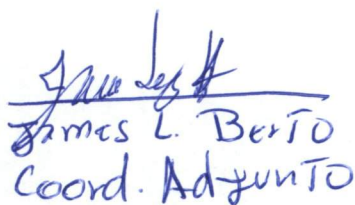 James L. Berto
Coord. Adjunto